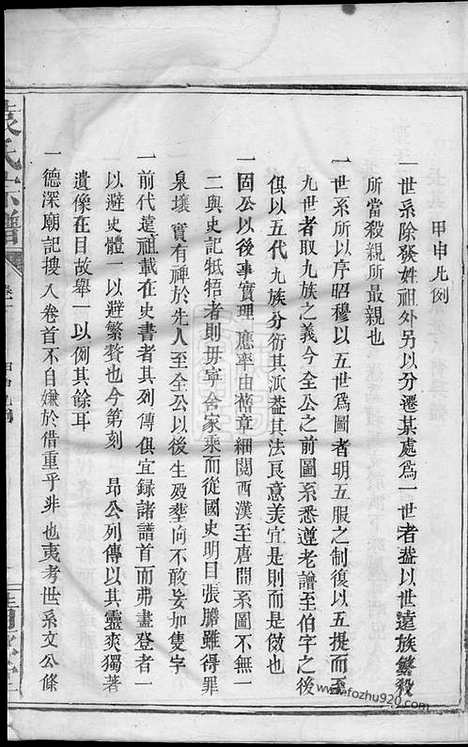 甲申凡例
一世系除從姓祖外另以分遷某處爲一世者蓋以世遠族繁殺
所當殺親所最親也
一世系所以序昭穆以五世爲圖者明五服之制復以五提而至
九世者取九族之義今全公之前圖系悉遵老譜至伯字之後
俱以五代九族分衍其派葢其法良意美宜是則而倣也
一固公以後事實理應率由舊章細閱西漢至唐間系圖不無一
二與史記牴牾者則毋寧舍家乘而從國史明目張膽雖得罪
泉壤實有裨於先人至全公以後生殁塋向不敢妄加隻字
一前代遠祖載在史書者其列傳俱宜錄諸譜首而弗盡登者一
以避史體一以避繁贅也今第刻 昂公列傳以其靈爽獨著
遺像在目故舉一以例其餘耳
一德深廟記搜入卷首不自嫌於借重乎非也夷考世系文公條
袁氏宗譜
卷一
甲申凡例